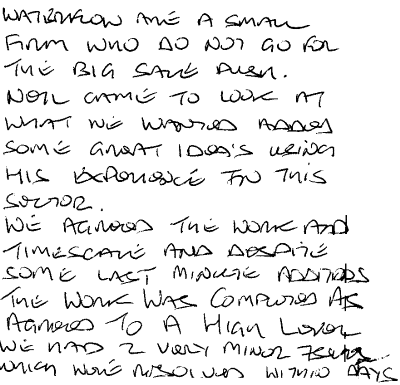 WATERFLOW ARE A SMALL
FIRM WHO DO NOT GO FOR
THE BIG SALE PUSH.
NEIL CAME TO LOOK AT
WHAT WE WANTED ADDED
SOME GREAT IDEA'S USING
HIS EXPERIENCE IN THIS
SECTOR.
WE AGREED THE WORK AND
TIMESCALE AND DESPITE
SOME LAST MINUTE ADDITIONS
THE WORK WAS COMPLETED AS
AGREED TO A HIGH LEVEL
WE HAD 2 VERY MINOR ISSUES
WHICH WERE RESOLVED WITHIN DAYS